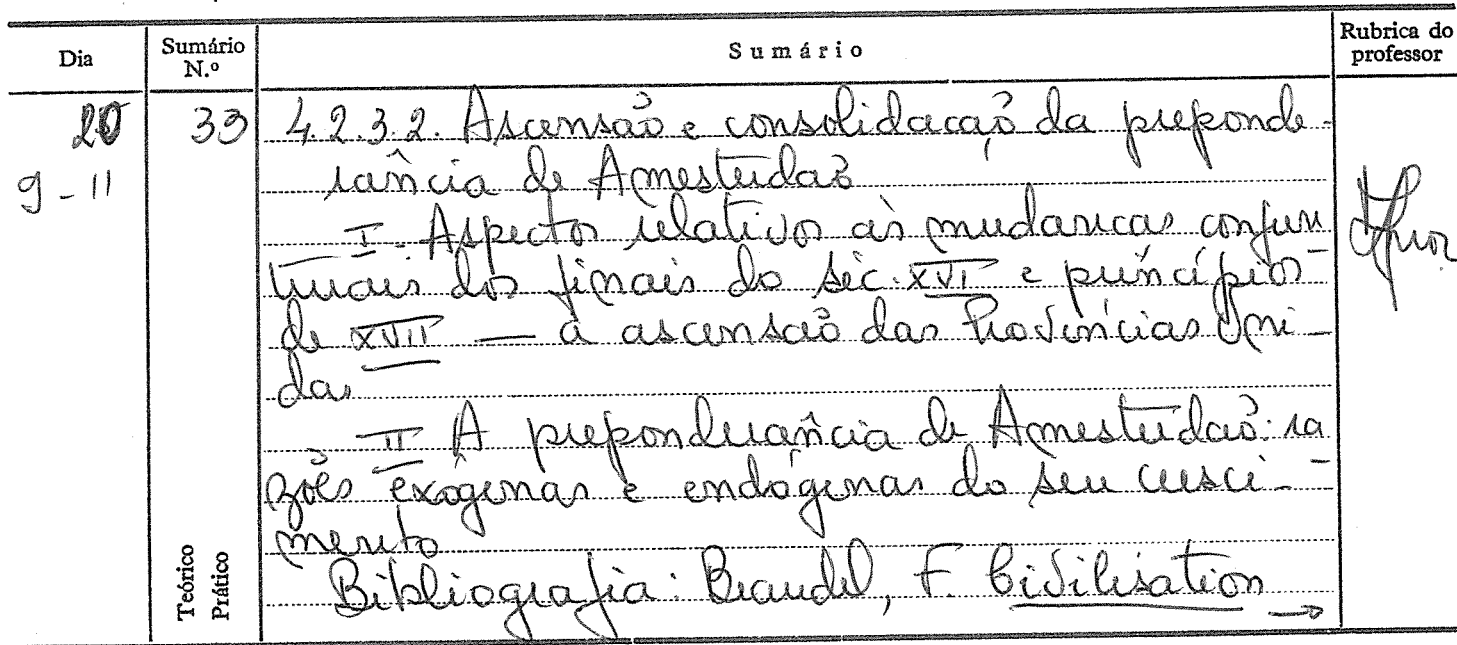 Dia
Sumário
N.º
Sumário
Rubrica do
professor
20
9-11
33
4.2.3.2. Ascensão e consolidação da preponde-
rância de Amesterdão
I - Aspectos relativos às mudanças conjun
turais dos finais do séc. XVI e princípios
de XVII — a ascensão das Províncias Uni-
das
II A preponderância de Amesterdão: ra
zões exógenas e endógenas do seu cresci-
mento
Bibliografia: Braudel, F. Civilisation →
Teórico
Prático